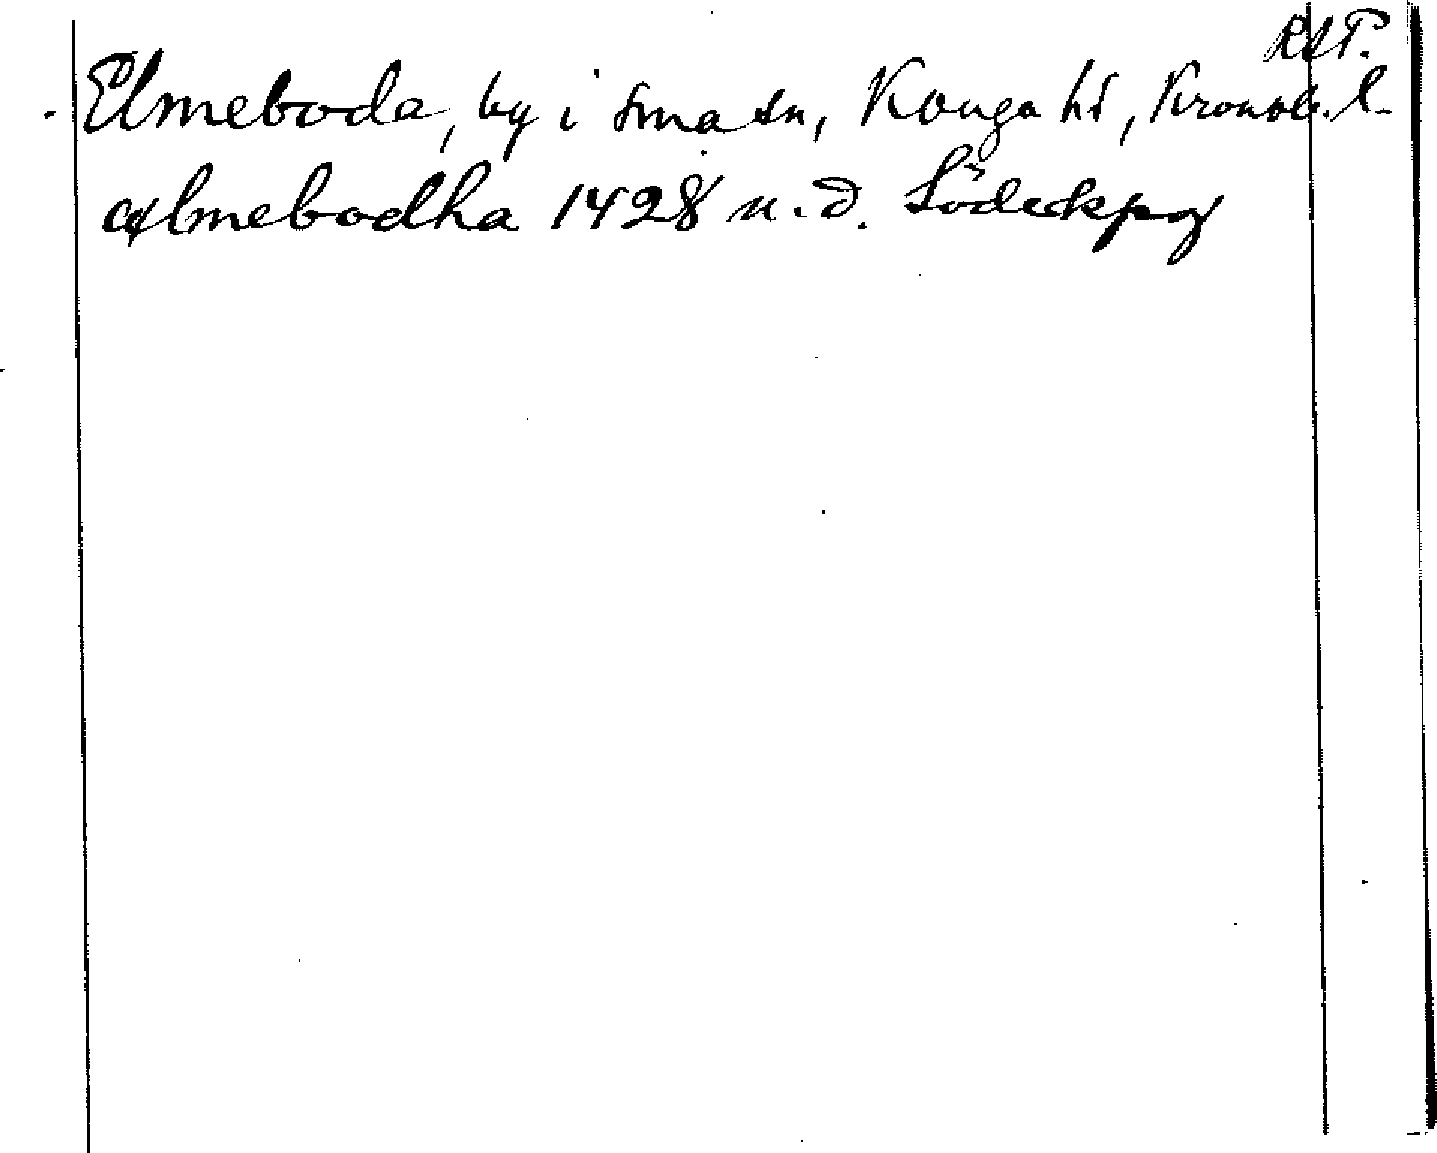 Elmeboda, by i sma sn, Konga hd, Kronob. l.
ælmebodha 1428 u.d. Södeckpg